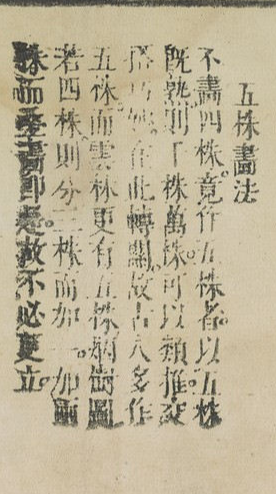 五株畫法
不畫四株。竟作五株者。以五株
既熟。則千株萬株。可以類推。交
搭巧妙。在此轉關。故古人多作
五株。而雲林更有五株烟樹圖。
若四株。則分三株而加一。加兩
株而疊畫即是。故不必更立。